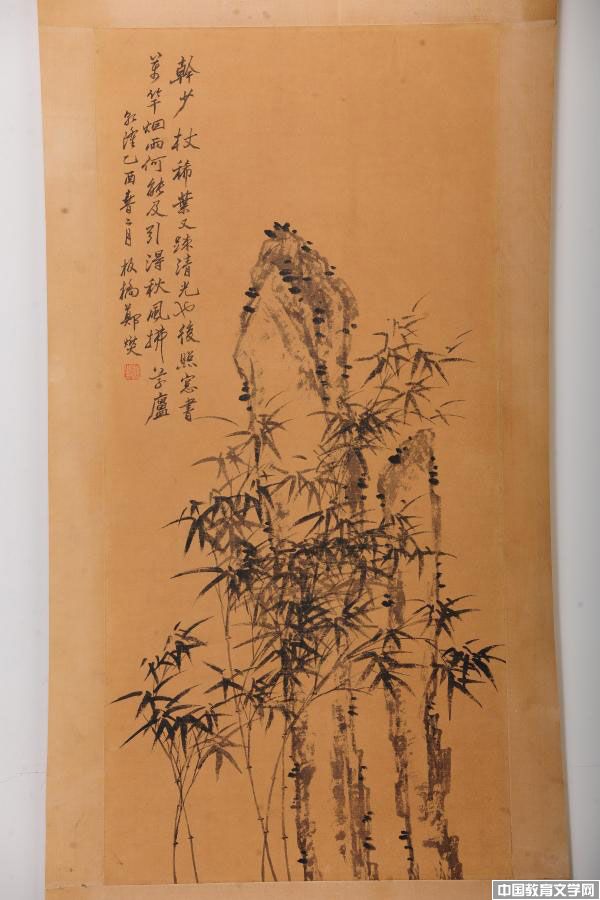 幹少杖稀葉又踈清光也後照窓書
萬竿烟雨何能及引淂秋風拂草廬
乾隆乙酉春二月板橋鄭燮
中国教育文学网